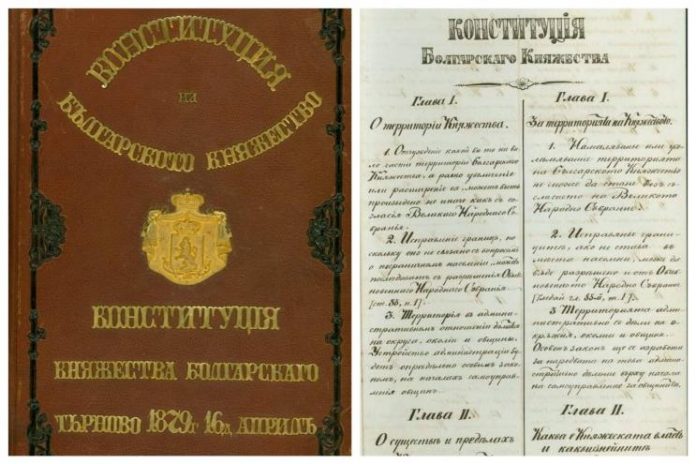 КОНСТИТУЦИЯ
НА
БЪЛГАРСКОТО КНЯЖЕСТВО
КОНСТИТУЦІЯ
КНЯЖЕСТВА БОЛГАРСКАГО
ТЪРНОВО 1879г 16д. АПРИЛЪ
КОНСТИТУЦІЯ
Болгарскаго Княжества
Глава I.
О территоріи Княжества.
1. Отчужденіе какой бы то ни бы
ло части территоріи Болгарскаго
Княжества, а равно уменьшенье
или расширеніе ея можетъ быть
произведено не иначе какъ съ со
гласія Великаго Народнаго Со
бранья.
2. Исправленіе границъ, по
скольку оно не связано съ вопросомъ
о пограничномъ населеніи, можетъ
последовать съ разрешенія Обык
новеннаго Народнаго Собранія
[ст. 85, п. 1].
3. Территорія въ админи
стративномъ отношеніи делится
на округа, околіи и общины.
Устройство администраціи бу
детъ определено особымъ зако
номъ, на началахъ самоуправ
ленія общинъ.
Глава II.
О существѣ и пределахъ
Глава I.
За территорията на Княжеството.
1. Намаляванье или уго
лемяванье территорията
на Българското Княжество
не може да стане безъ съ
гласието на Великото
Народно Събрание.
2. Исправянье грани
цитѣ, ако не става въ
место населени, може да
бѫде разрешено и отъ Обик
новеното Народно Събрание
3. Территорията адми
нистративно се дѣли на о
крѫжия, околии и общини.
Особенъ законъ ще се изработи
за наредбата на това админи
стративно деление върху начала
на самоуправление за общинитѣ.
Глава II.
Каква е Княжеската власть
и какви